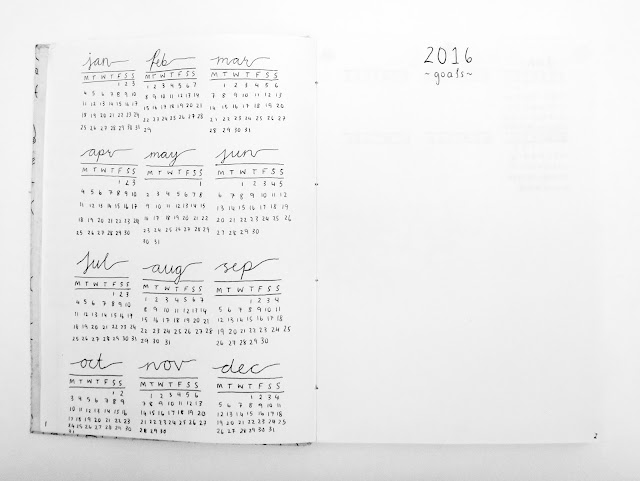 jan
M T W T F S S
1 2 3
4 5 6 7 8 9 10
11 12 13 14 15 16 17
18 19 20 21 22 23 24
25 26 27 28 29 30 31
feb
M T W T F S S
1 2 3 4 5 6 7
8 9 10 11 12 13 14
15 16 17 18 19 20 21
22 23 24 25 26 27 28
29
mar
M T W T F S S
1 2 3 4 5 6
7 8 9 10 11 12 13
14 15 16 17 18 19 20
21 22 23 24 25 26 27
28 29 30 31
apr
M T W T F S S
1 2 3
4 5 6 7 8 9 10
11 12 13 14 15 16 17
18 19 20 21 22 23 24
25 26 27 28 29 30
may
M T W T F S S
1
2 3 4 5 6 7 8
9 10 11 12 13 14 15
16 17 18 19 20 21 22
23 24 25 26 27 28 29
30 31
jun
M T W T F S S
1 2 3 4 5
6 7 8 9 10 11 12
13 14 15 16 17 18 19
20 21 22 23 24 25 26
27 28 29 30
jul
M T W T F S S
1 2 3
4 5 6 7 8 9 10
11 12 13 14 15 16 17
18 19 20 21 22 23 24
25 26 27 28 29 30 31
aug
M T W T F S S
1 2 3 4 5 6 7
8 9 10 11 12 13 14
15 16 17 18 19 20 21
22 23 24 25 26 27 28
29 30 31
sep
M T W T F S S
1 2 3 4
5 6 7 8 9 10 11
12 13 14 15 16 17 18
19 20 21 22 23 24 25
26 27 28 29 30
oct
M T W T F S S
1 2
3 4 5 6 7 8 9
10 11 12 13 14 15 16
17 18 19 20 21 22 23
24 25 26 27 28 29 30
31
nov
M T W T F S S
1 2 3 4 5 6
7 8 9 10 11 12 13
14 15 16 17 18 19 20
21 22 23 24 25 26 27
28 29 30
dec
M T W T F S S
1 2 3 4
5 6 7 8 9 10 11
12 13 14 15 16 17 18
19 20 21 22 23 24 25
26 27 28 29 30 31
1
2016
~goals~
2